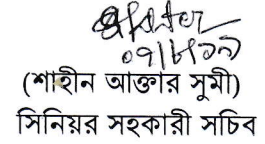 (শাহীন আক্তার সুমী)
সিনিয়র সহকারী সচিব